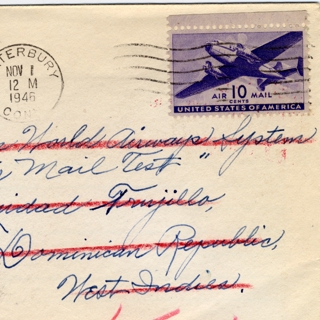 TERBURY
NOV 1
12 M
1946
CONN
10
CENTS
AIR MAIL
UNITED STATES OF AMERICA
World Airways System
Mail Test"
Trujillo,
Dominican Republic,
West Indies.